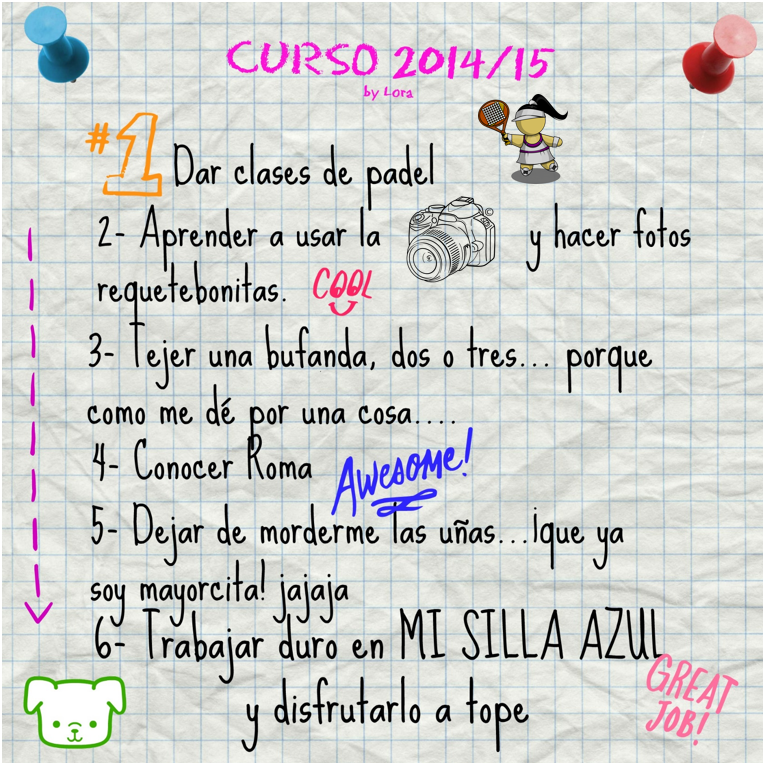 CURSO 2014/15
by Lora
#1 Dar clases de padel
2- Aprender a usar la y hacer fotos
requetebonitas. COOL
3- Tejer una bufanda, dos o tres... porque
como me dé por una cosa....
4- Conocer Roma Awesome!
5- Dejar de morderme las uñas...¡que ya
soy mayorcita! jajaja
6- Trabajar duro en MI SILLA AZUL
GREAT
JOB!
y disfrutarlo a tope